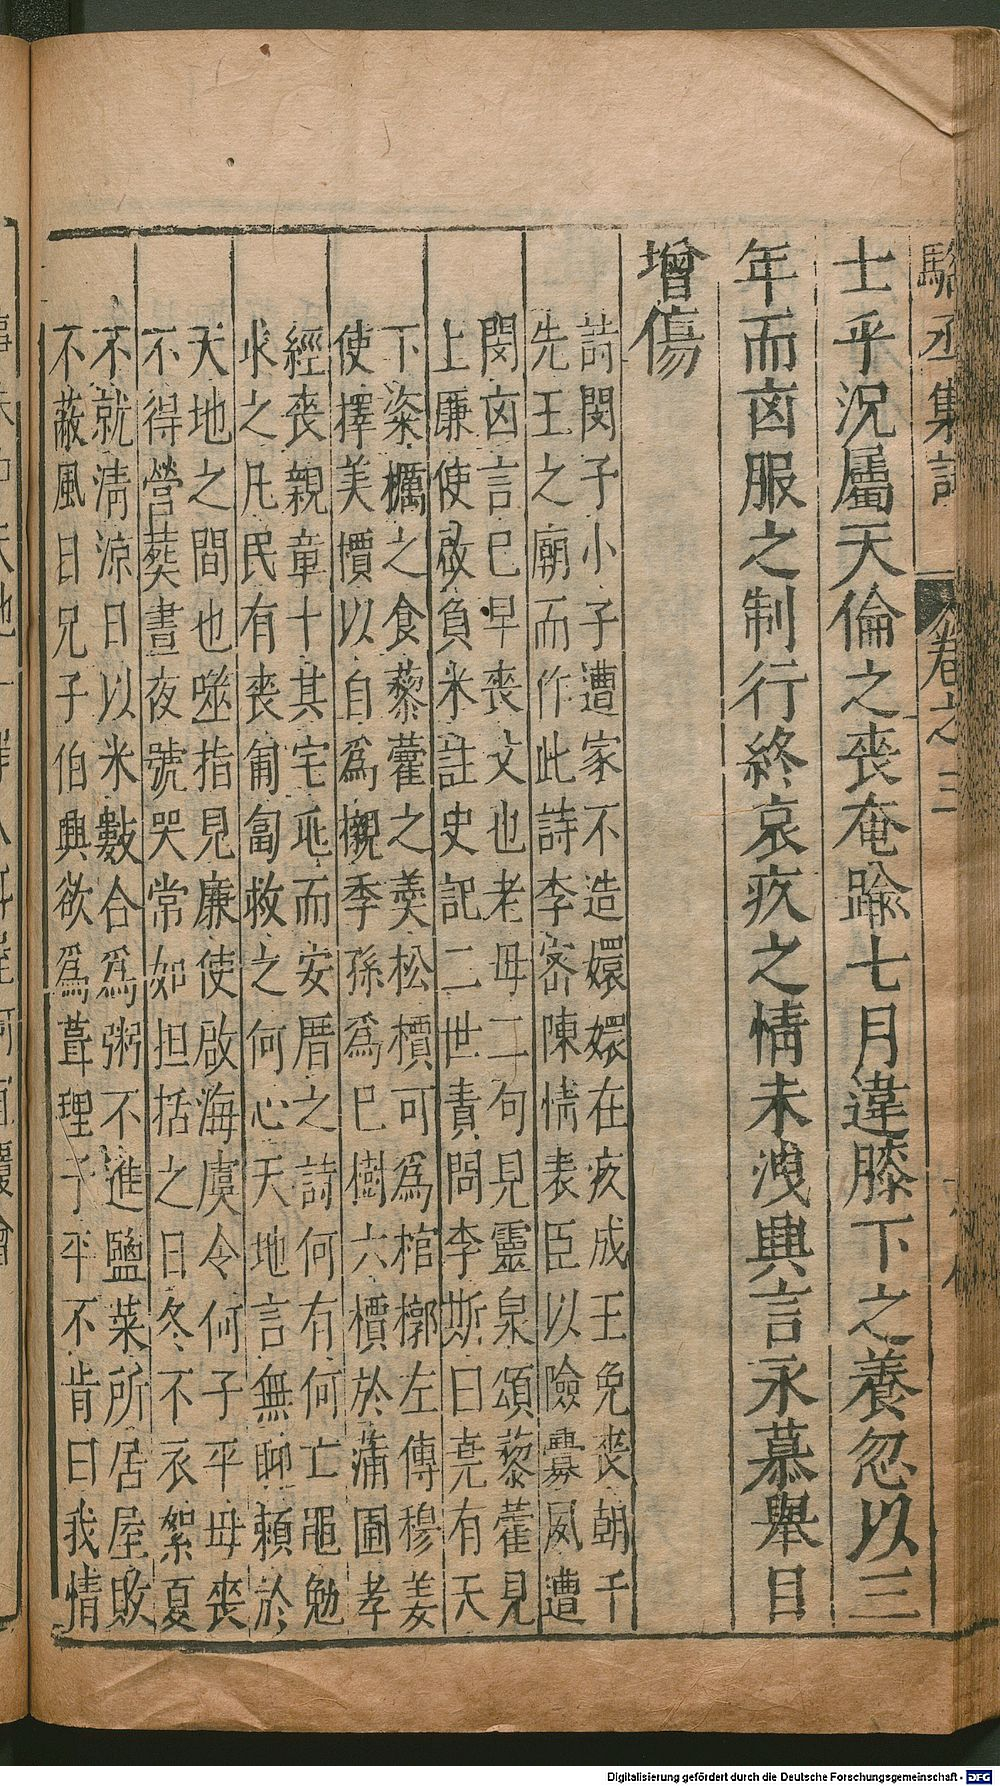 士乎況屬天倫之喪奄踰七月違膝下之養忽以三
年而㐫服之制行終哀疚之情未洩興言永慕舉目
增傷
詩閔予小子遭家不造嬛嬛在疚成王免喪朝千
先王之廟而作此詩李密陳情表臣以險釁夙遭
閔㐫言巳早喪父也老毋二句見靈泉頌藜藿見
上廉使啟負米註史記二世責問李斯曰堯有天
下粢糲之食藜藿之羹松檟可爲棺槨左傳穆姜
使擇美檟以自爲櫬季孫爲巳樹六檟於蒲圃孝
經喪親章十其宅兆而安厝之詩何有何亡黽勉
求之凡民有喪匍匐救之何心天地言無聊賴於
天地之間也噬指見廉使啟海虞令何子平毋喪
不得營葬晝夜號哭常如担括之日冬不衣絮夏
不就淸涼日以米數合爲粥不進鹽菜所居屋敗
不蔽風日兄子伯興欲爲葺理子平不肯曰我情
Digitalisierung gefördert durch die Deutsche Forschungsgemeinschaft - DFG